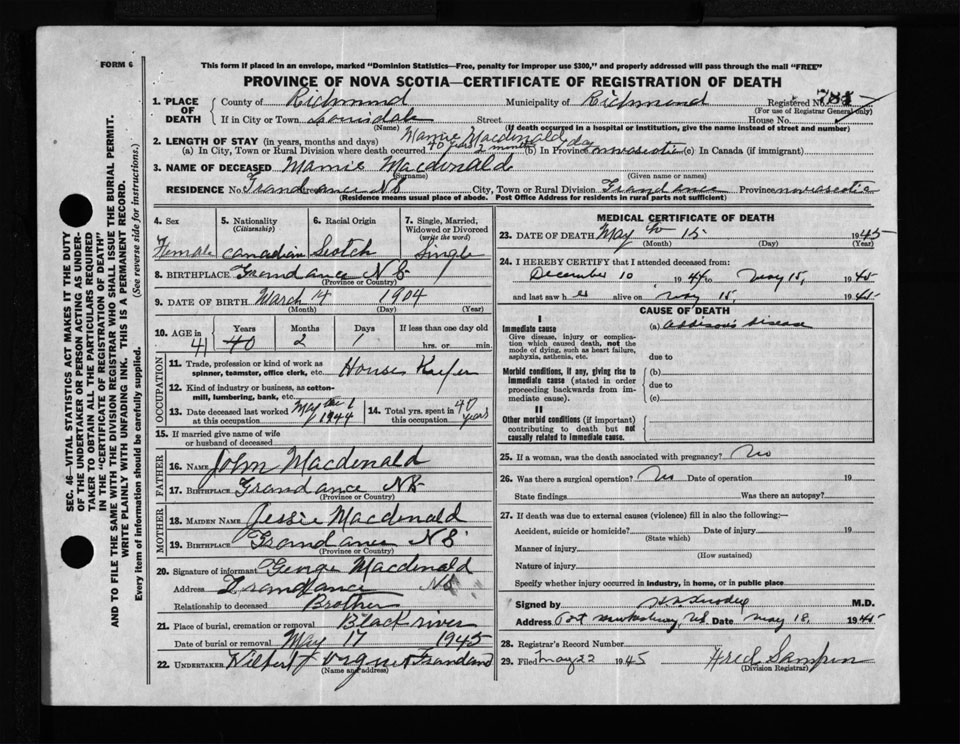 FORM 6
This form if placed in an envelope, marked "Dominion Statistics—Free, penalty for improper use $300," and properly addressed will pass through the mail "FREE"
PROVINCE OF NOVA SCOTIA—CERTIFICATE OF REGISTRATION OF DEATH
1. PLACE OF DEATH
County of Richmond Municipality of Richmond Registered No.
(For use of Registrar General only)
If in City or Town Louisdale Street House No.
(Name) (If death occurred in a hospital or institution, give the name instead of street and number)
Mamie Macdonald
2. LENGTH OF STAY (in years, months and days)
(a) In City, Town or Rural Division where death occurred 40 years 2 months 1 day (b) In Province novascotia (c) In Canada (if immigrant)
3. NAME OF DECEASED Mamie Macdonald
(Surname) (Given name or names)
RESIDENCE No. Grandance NS City, Town or Rural Division Grandance Province novascotia
(Residence means usual place of abode. Post Office Address for residents in rural parts not sufficient)
4. Sex Female
5. Nationality (Citizenship) Canadian
6. Racial Origin Scotch
7. Single, Married, Widowed or Divorced (write the word) Single
8. BIRTHPLACE Grandance NS
(Province or Country)
9. DATE OF BIRTH March 14 1904
(Month) (Day) (Year)
10. AGE IN 41 Years 40 Months 2 Days 1 If less than one day old hrs. or min.
OCCUPATION
11. Trade, profession or kind of work as spinner, teamster, office clerk, etc. House Keeper
12. Kind of industry or business, as cotton-mill, lumbering, bank, etc.
13. Date deceased last worked at this occupation May 1944
14. Total yrs. spent in this occupation 40 years
15. If married give name of wife or husband of deceased
FATHER
16. NAME John Macdonald
17. BIRTHPLACE Grandance NS
(Province or Country)
MOTHER
18. MAIDEN NAME Jessie Macdonald
19. BIRTHPLACE Grandance NS
(Province or Country)
20. Signature of informant George Macdonald
Address Grandance NS
Relationship to deceased Brother
21. Place of burial, cremation or removal Black river
Date of burial or removal May 17 1945
22. UNDERTAKER Wilbert
(Name and address)
MEDICAL CERTIFICATE OF DEATH
23. DATE OF DEATH May 15 1945
(Month) (Day) (Year)
24. I HEREBY CERTIFY that I attended deceased from:
December 10 1944 to May 15, 1945
and last saw her alive on May 15, 1945
CAUSE OF DEATH
I
Immediate cause
Give disease, injury or complication which caused death, not the mode of dying, such as heart failure, asphyxia, asthenia, etc.
(a) Addison's disease
due to
Morbid conditions, if any, giving rise to immediate cause (stated in order proceeding backwards from immediate cause).
(b)
due to
(c)
II
Other morbid conditions (if important) contributing to death but not causally related to immediate cause.
25. If a woman, was the death associated with pregnancy? No
26. Was there a surgical operation? No Date of operation 19
State findings Was there an autopsy?
27. If death was due to external causes (violence) fill in also the following:—
Accident, suicide or homicide? Date of injury 19
(State which)
Manner of injury
(How sustained)
Nature of injury
Specify whether injury occurred in industry, in home, or in public place
Signed by M.D.
Address Port Hawkesbury, NS. Date May 18, 1945
28. Registrar's Record Number
29. Filed May 22 1945 Fred Sampson
(Division Registrar)
SEC. 46—VITAL STATISTICS ACT MAKES IT THE DUTY OF THE UNDERTAKER OR PERSON ACTING AS UNDERTAKER TO OBTAIN ALL THE PARTICULARS REQUIRED IN THE "CERTIFICATE OF REGISTRATION OF DEATH" AND TO FILE THE SAME WITH THE DIVISION REGISTRAR WHO SHALL ISSUE THE BURIAL PERMIT.
WRITE PLAINLY WITH UNFADING INK. THIS IS A PERMANENT RECORD.
Every item of information should be carefully supplied. (See reverse side for instructions.)